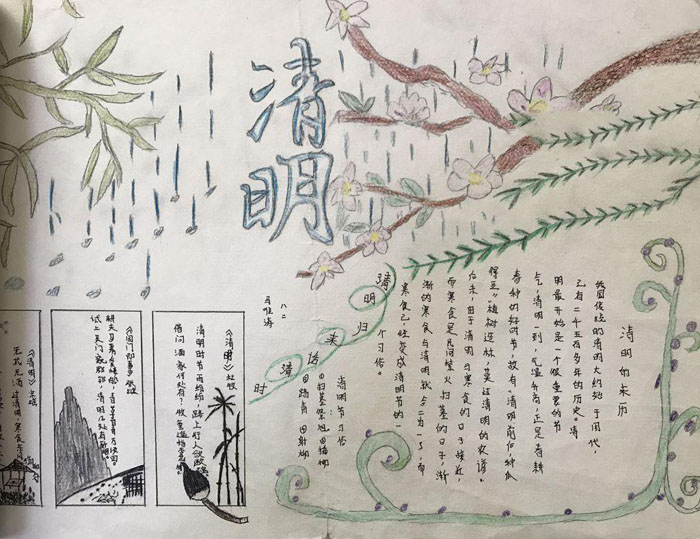 清明
清明的来历
我国传统的清明大约始于周代，
已有二千五百多年的历史。清
明最开始是一个很重要的节
气，清明一到，气温升高，正是春耕
春种的好时节，故有“清明前后，种瓜
得豆”“植树造林，莫过清明”的农谚。
后来，由于清明与寒食的日子接近，
而寒食是民间禁火扫墓的日子，渐
渐的寒食与清明就合二为一了，而
寒食已经变成清明节的一
个习俗。
清明归来话清时
清明节习俗：
①扫墓祭祖 ②插柳
③踏青 ④射柳
八二
《清明》杜牧
清明时节雨纷纷，路上行人欲断魂。
借问酒家何处有？牧童遥指杏花村。
张继
耕夫召募逐楼船，春草青青万顷田。
试上吴门窥郡郭，清明几处有新烟。
《清明》
无花无酒过清明